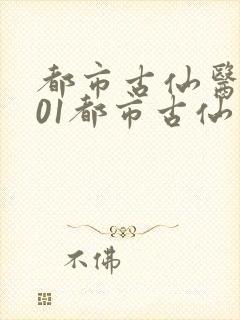 都市古仙醫
01都市古仙
不佛